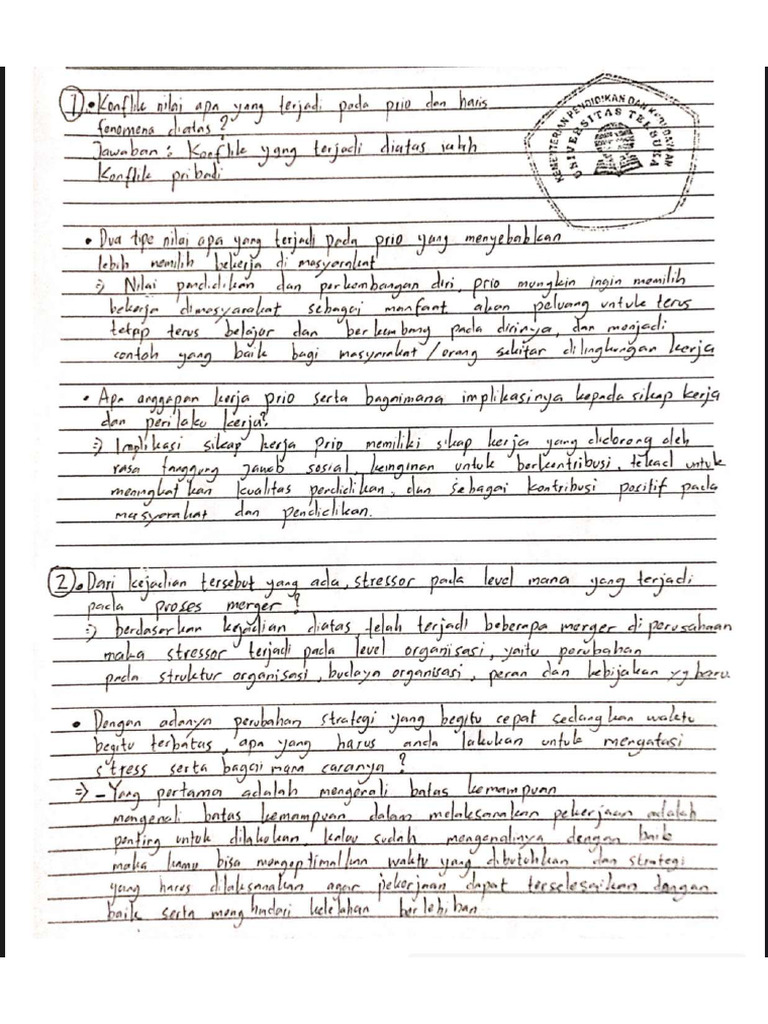 1. • Konflik nilai apa yang terjadi pada prio dan haris
fenomena diatas?
Jawaban : Konflik yang terjadi diatas ialah
Konflik pribadi
KEMENTERIAN PENDIDIKAN DAN KEBUDAYAAN
UNIVERSITAS TERBUKA
• Dua tipe nilai apa yang terjadi pada prio yang menyebabkan
lebih memilih bekerja di masyarakat
=> Nilai pendidikan dan perkembangan diri, prio mungkin ingin memilih
bekerja dimasyarakat sebagai manfaat akan peluang untuk terus
tetap terus belajar dan berkembang pada dirinya, dan menjadi
contoh yang baik bagi masyarakat/orang sekitar dilingkungan kerja
• Apa anggapan kerja prio serta bagaimana implikasinya kepada sikap kerja
dan perilaku kerja?
=> Implikasi sikap kerja prio memiliki sikap kerja yang didorong oleh
rasa tanggung jawab sosial, keinginan untuk berkontribusi, tekad untuk
meningkatkan kualitas pendidikan, dan sebagai kontribusi positif pada
masyarakat dan pendidikan.
2. • Dari kejadian tersebut yang ada, stressor pada level mana yang terjadi
pada proses merger?
=> berdasarkan kejadian diatas telah terjadi beberapa merger di perusahaan
maka stressor terjadi pada level organisasi, yaitu perubahan
pada struktur organisasi, budaya organisasi, peran dan kebijakan yg baru.
• Dengan adanya perubahan strategi yang begitu cepat sedangkan waktu
begitu terbatas, apa yang harus anda lakukan untuk mengatasi
stress serta bagaimana caranya?
=> - Yang pertama adalah mengenali batas kemampuan
mengenali batas kemampuan dalam melaksanakan pekerjaan adalah
penting untuk dilakukan, kalau sudah mengenalinya dengan baik
maka kamu bisa mengoptimalkan waktu yang dibutuhkan dan strategi
yang harus dilaksanakan agar pekerjaan dapat terselesaikan dengan
baik serta menghindari kelelahan berlebihan